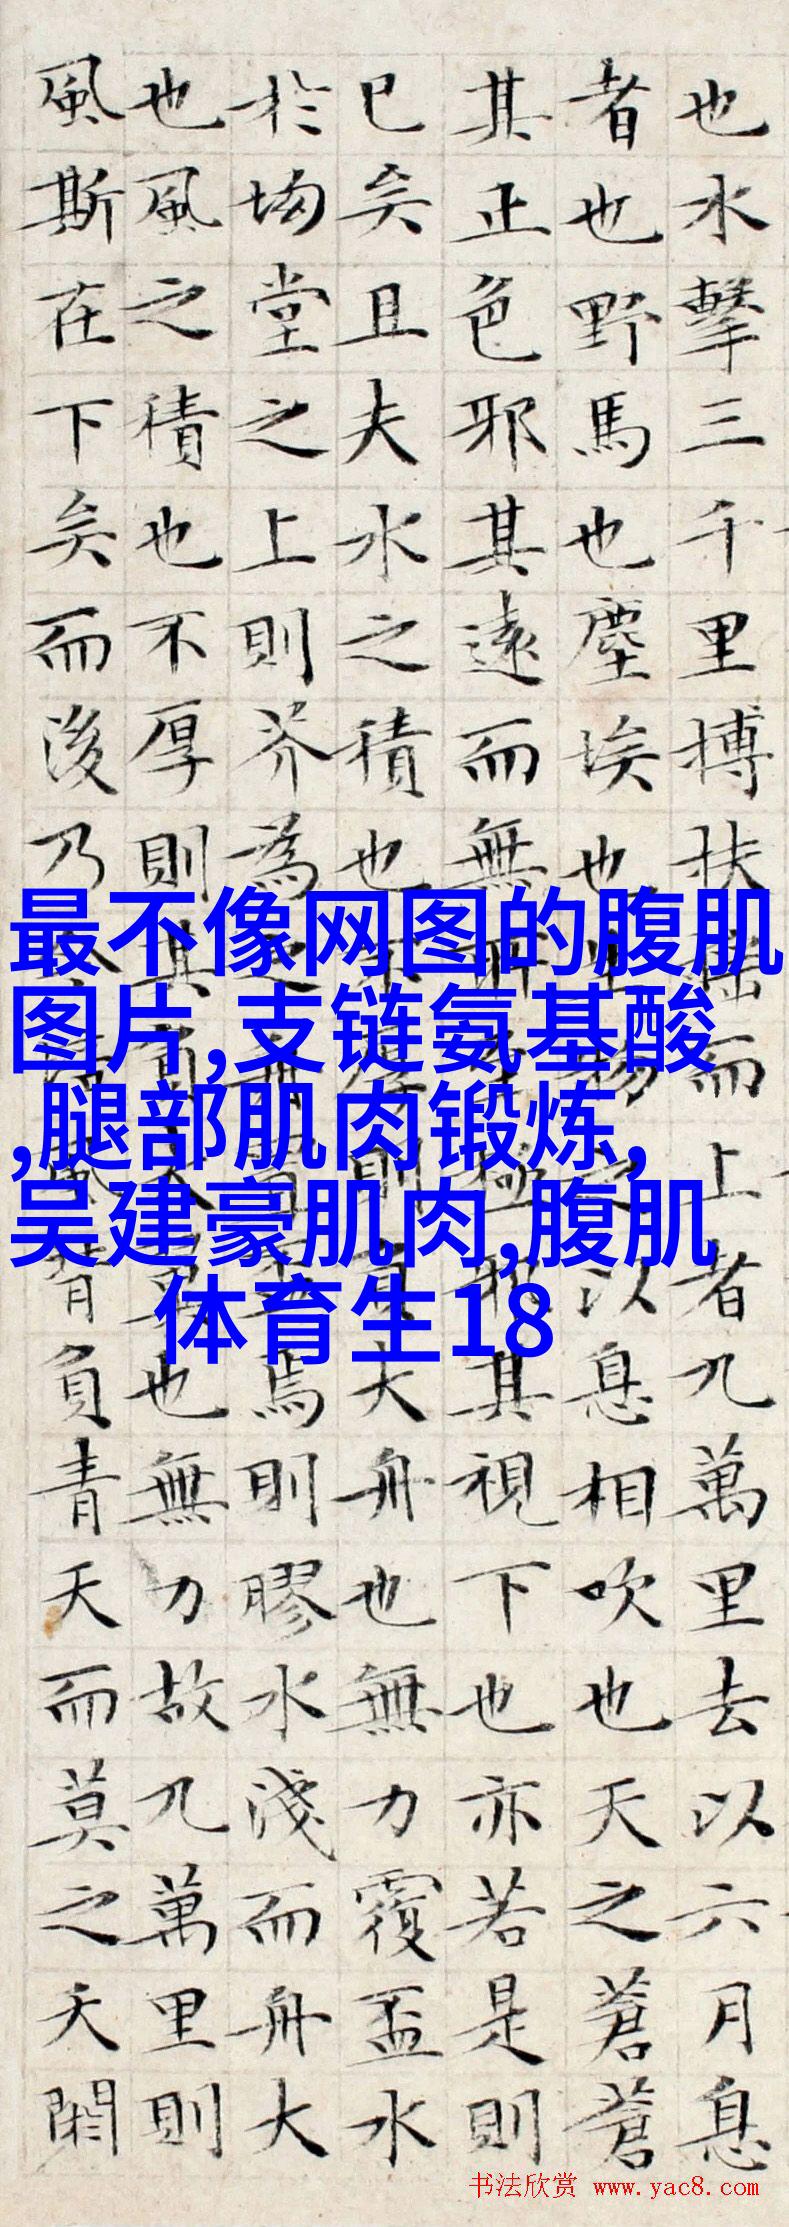 也水擊三千里搏扶搖而上者九萬里去以六月息
者也野馬也塵埃也生物之以息相吹也天之蒼蒼
其正色邪其遠而無所至極邪其視下也亦若是則
已矣且夫水之積也不厚則負大舟也無力覆盃水
於坳堂之上則芥為之舟置盃焉則膠水淺而舟大
也風之積也不厚則其負大翼也無力故九萬里則
風斯在下矣而後乃今培風背負青天而莫之夭閼
最不像网图的腹肌
图片,支链氨基酸
,腿部肌肉锻炼,
吴建豪肌肉,腹肌
体育生18
书法欣赏 www.yac8.com